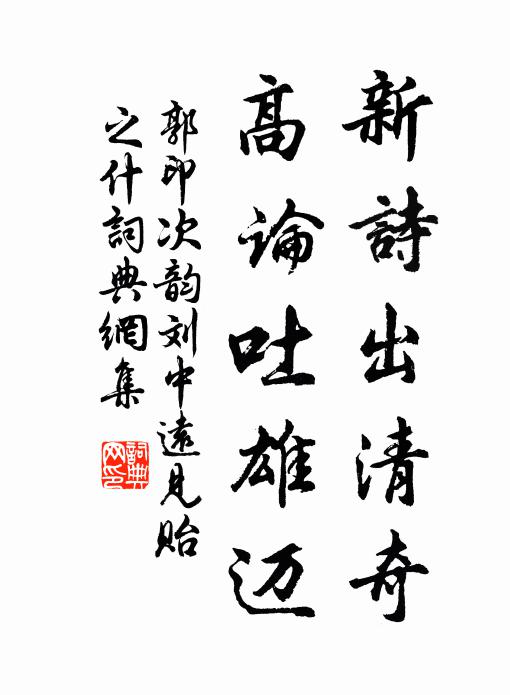 新詩出清奇
高論吐雄迈
郭印次韵刘中遠見貽
之什詞典網集
詞典
网印